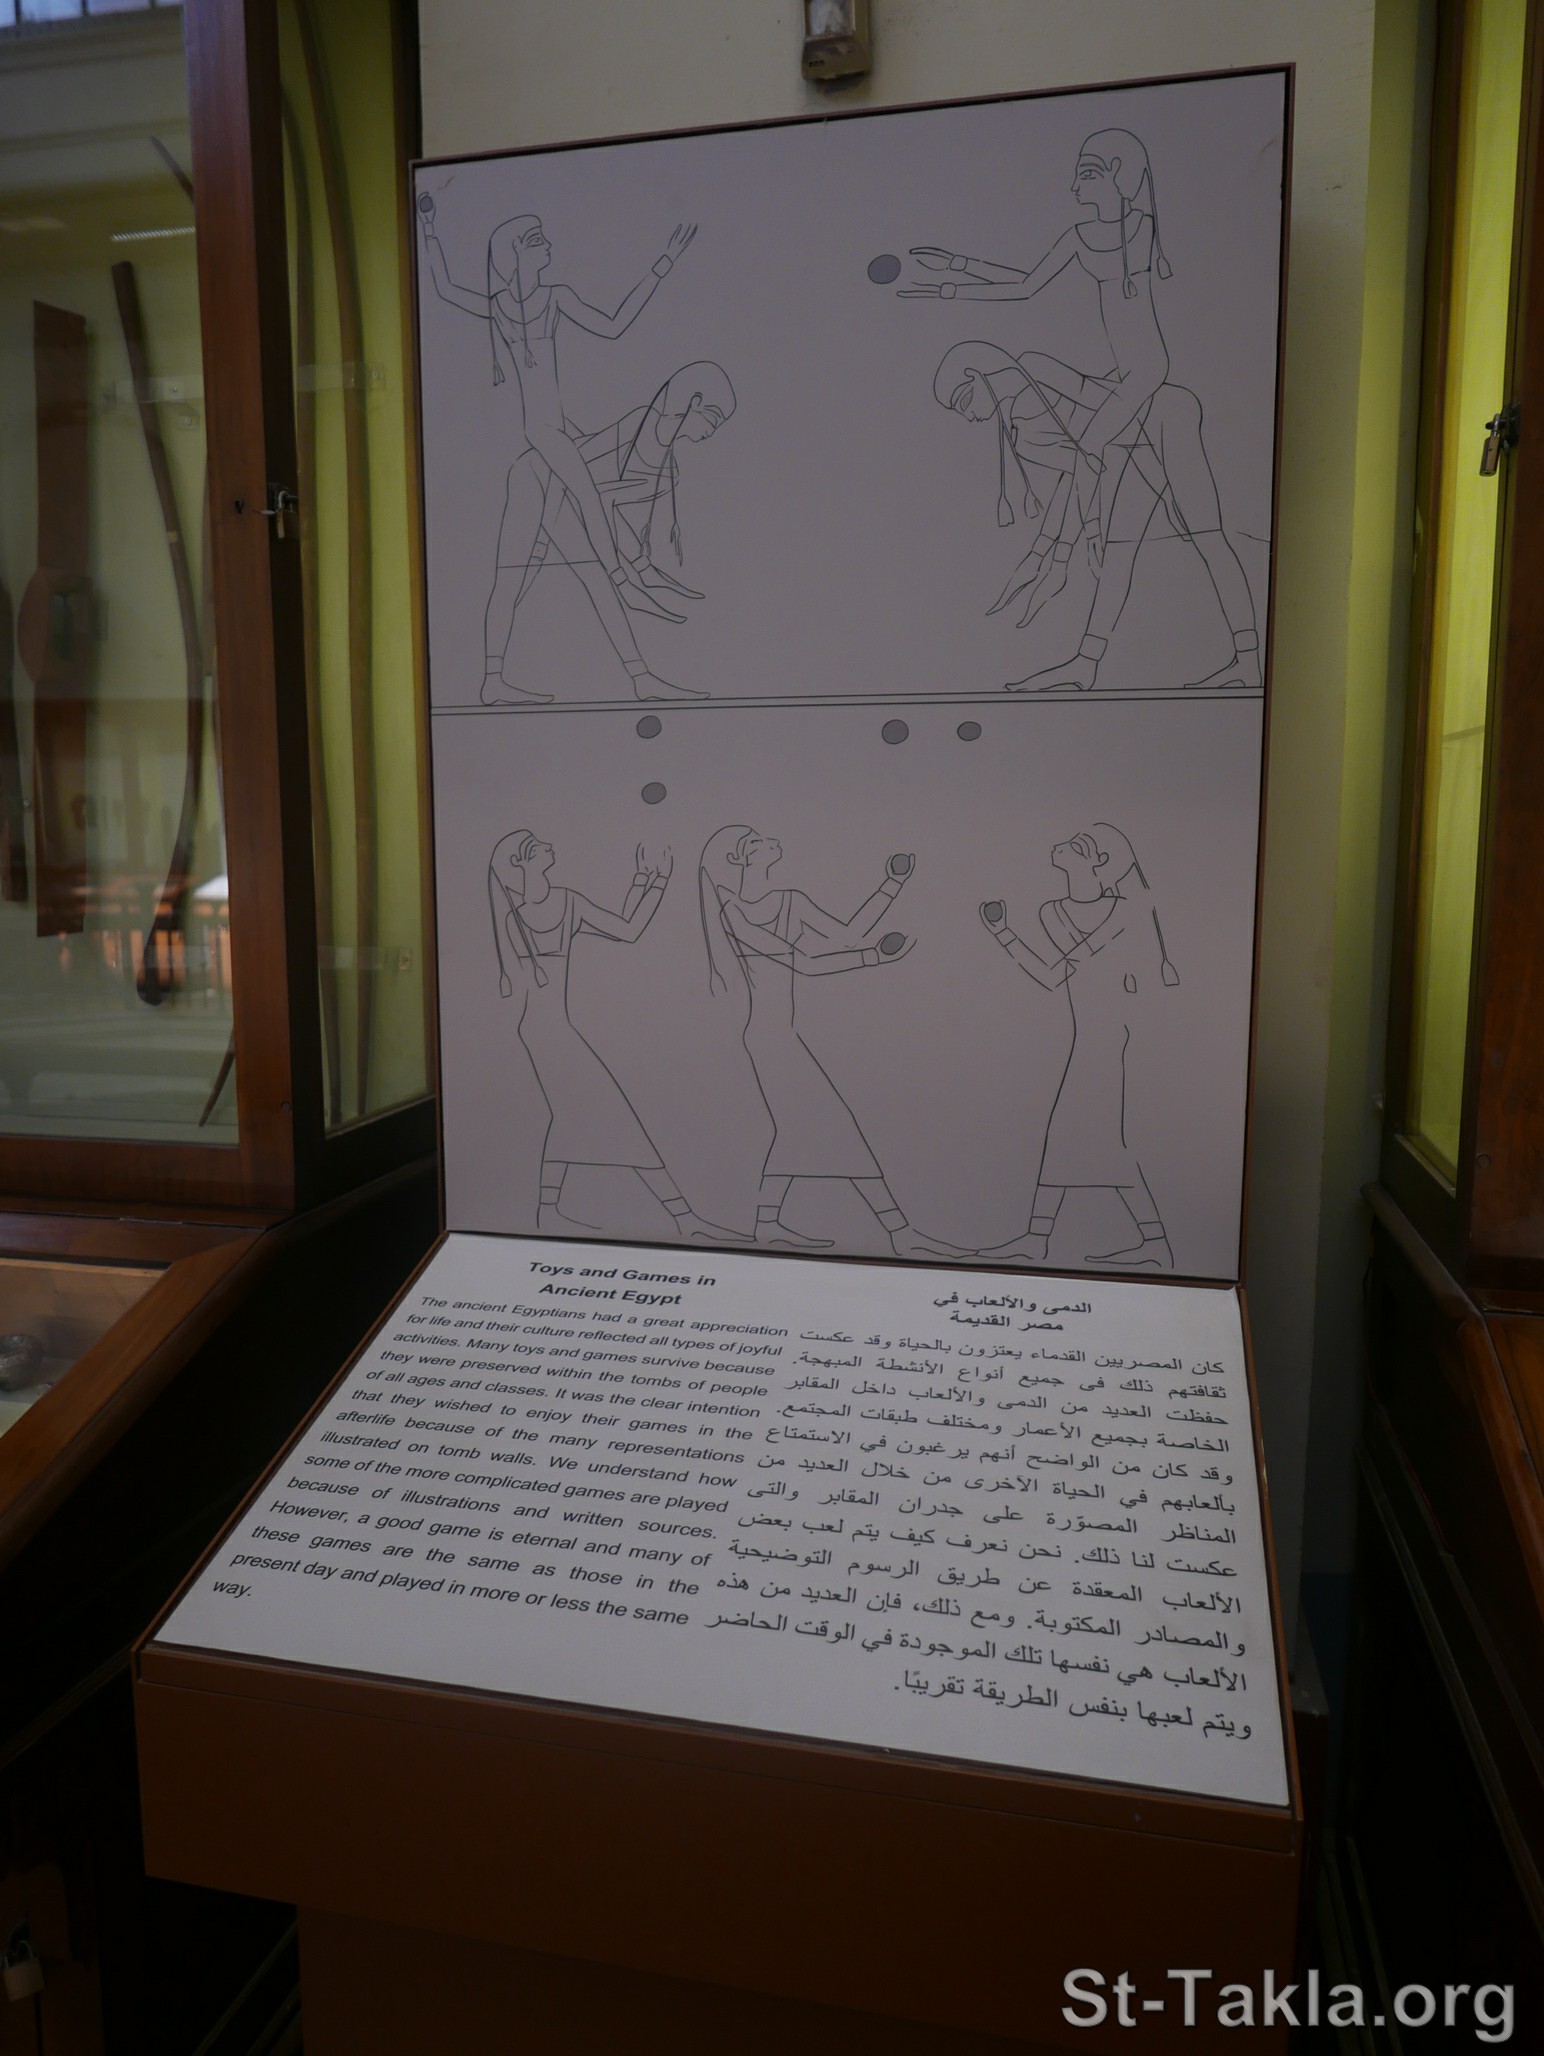 Toys and Games in
Ancient Egypt
The ancient Egyptians had a great appreciation
for life and their culture reflected all types of joyful
activities. Many toys and games survive because
they were preserved within the tombs of people
of all ages and classes. It was the clear intention
that they wished to enjoy their games in the
afterlife because of the many representations
illustrated on tomb walls. We understand how
some of the more complicated games are played
because of illustrations and written sources.
However, a good game is eternal and many of
these games are the same as those in the
present day and played in more or less the same
way.
الدمى والألعاب في
مصر القديمة
كان المصريين القدماء يعتزون بالحياة وقد عكست
ثقافتهم ذلك فى جميع أنواع الأنشطة المبهجة.
حفظت العديد من الدمى والألعاب داخل المقابر
الخاصة بجميع الأعمار ومختلف طبقات المجتمع.
وقد كان من الواضح أنهم يرغبون في الاستمتاع
بألعابهم في الحياة الآخرى من خلال العديد من
المناظر المصوّرة على جدران المقابر والتى
عكست لنا ذلك. نحن نعرف كيف يتم لعب بعض
الألعاب المعقدة عن طريق الرسوم التوضيحية
والمصادر المكتوبة. ومع ذلك، فإن العديد من هذه
الألعاب هي نفسها تلك الموجودة في الوقت الحاضر
ويتم لعبها بنفس الطريقة تقريبًا.
St-Takla.org